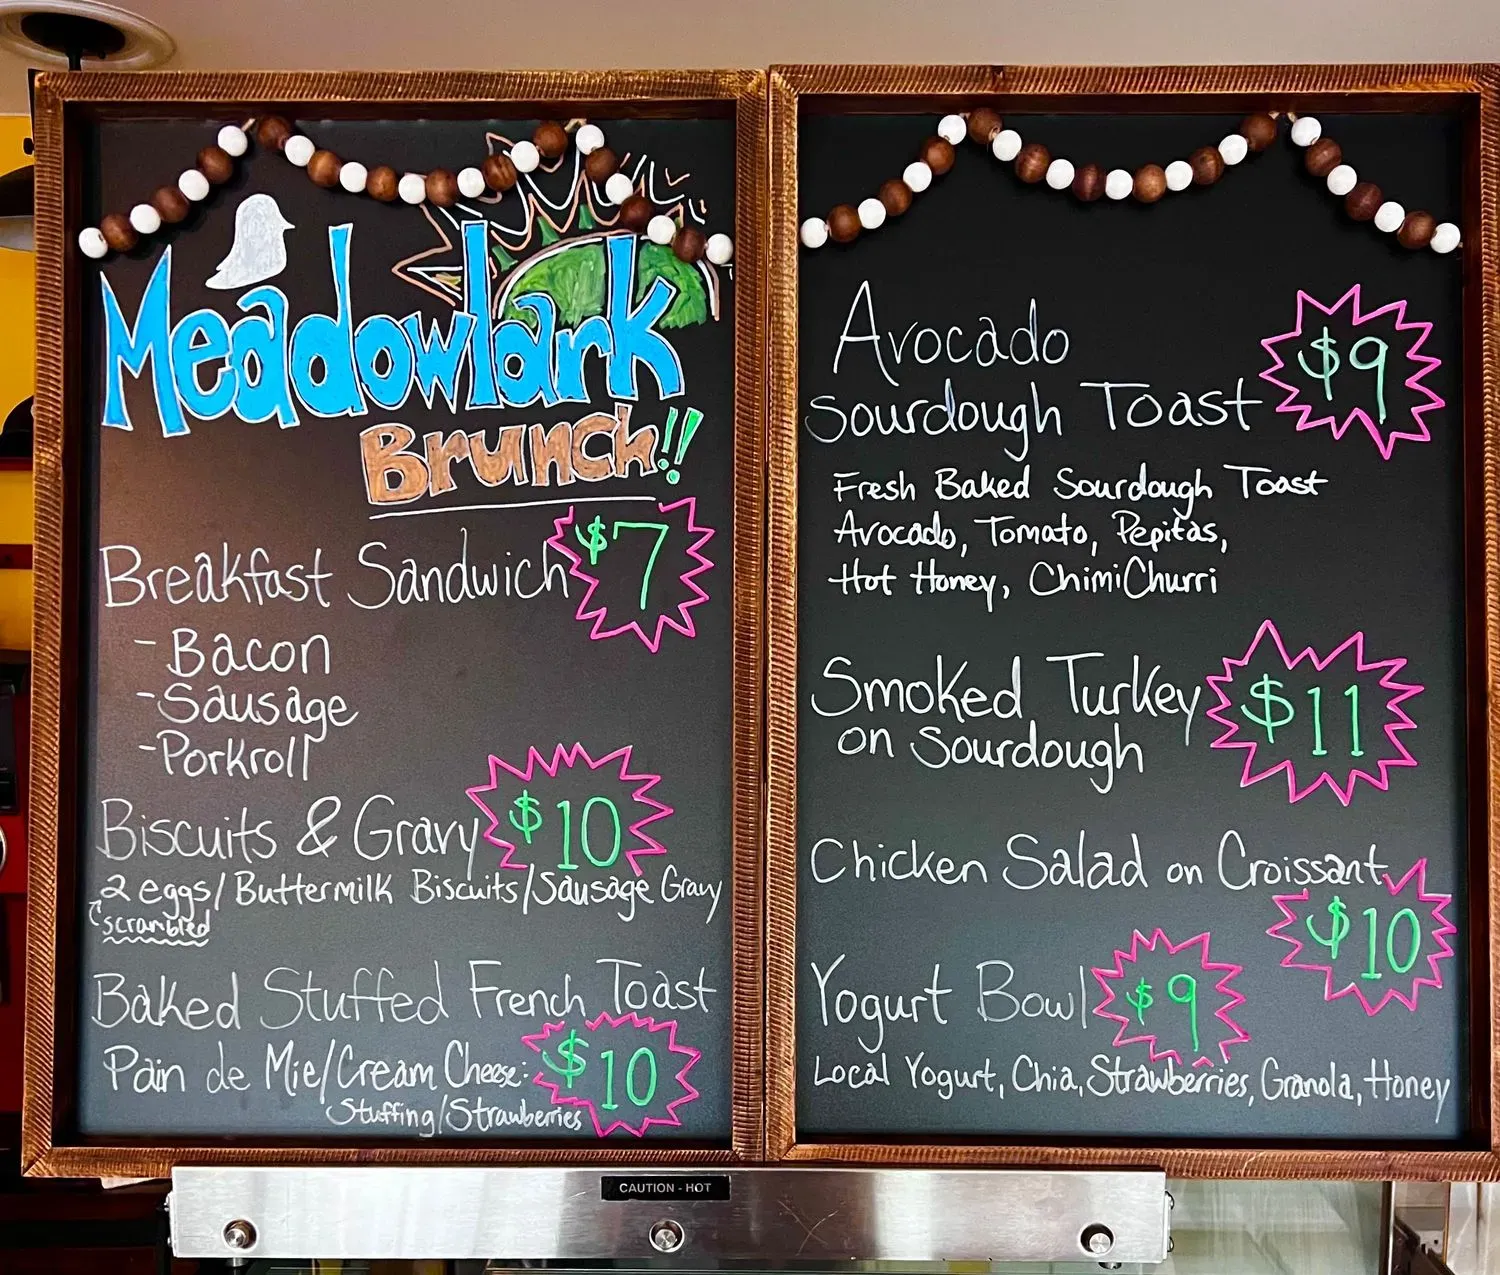 Meadowlark
Brunch!!
Breakfast Sandwich $7
- Bacon
- Sausage
- Porkroll
Biscuits & Gravy $10
2 eggs/Buttermilk Biscuits/Sausage Gravy
scrambled
Baked Stuffed French Toast
Pain de Mie/Cream Cheese: $10
Stuffing/Strawberries
Avocado
Sourdough Toast $9
Fresh Baked Sourdough Toast
Avocado, Tomato, Pepitas,
Hot Honey, ChimiChurri
Smoked Turkey $11
on Sourdough
Chicken Salad on Croissant
$10
Yogurt Bowl $9
Local Yogurt, Chia, Strawberries, Granola, Honey
CAUTION - HOT